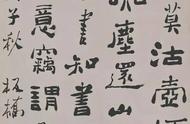 莫沽壺
塵還山
書知書
意竊謂
子秋板橋